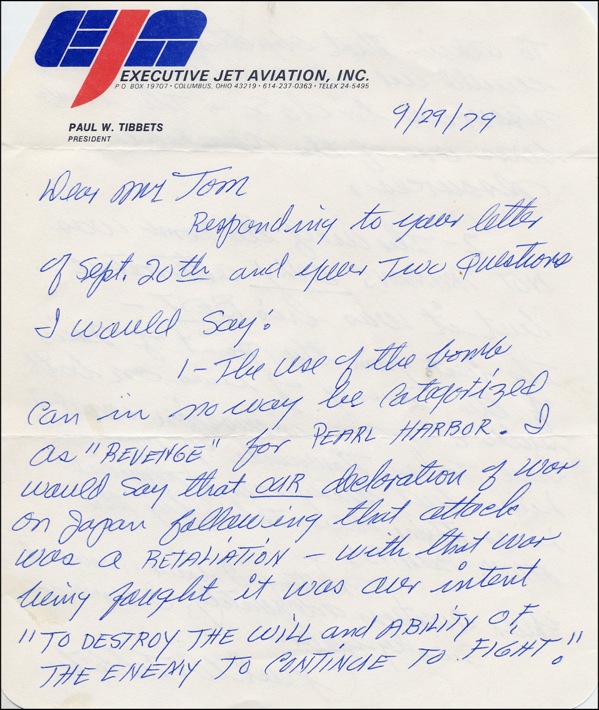 EJA
EXECUTIVE JET AVIATION, INC.
P O BOX 19707 • COLUMBUS, OHIO 43219 • 614-237-0363 • TELEX 24-5495
PAUL W. TIBBETS
PRESIDENT
9/29/79
Dear Mr Tom
Responding to your letter
of Sept. 20th and your Two Questions
I would Say:
1 - The use of the bomb
can in no way be categorized
as "REVENGE" for PEARL HARBOR. I
would say that OUR declaration of war
on Japan following that attack
was a RETALIATION - with that war
being fought it was our intent
"TO DESTROY THE WILL and ABILITY OF
THE ENEMY TO CONTINUE TO FIGHT."